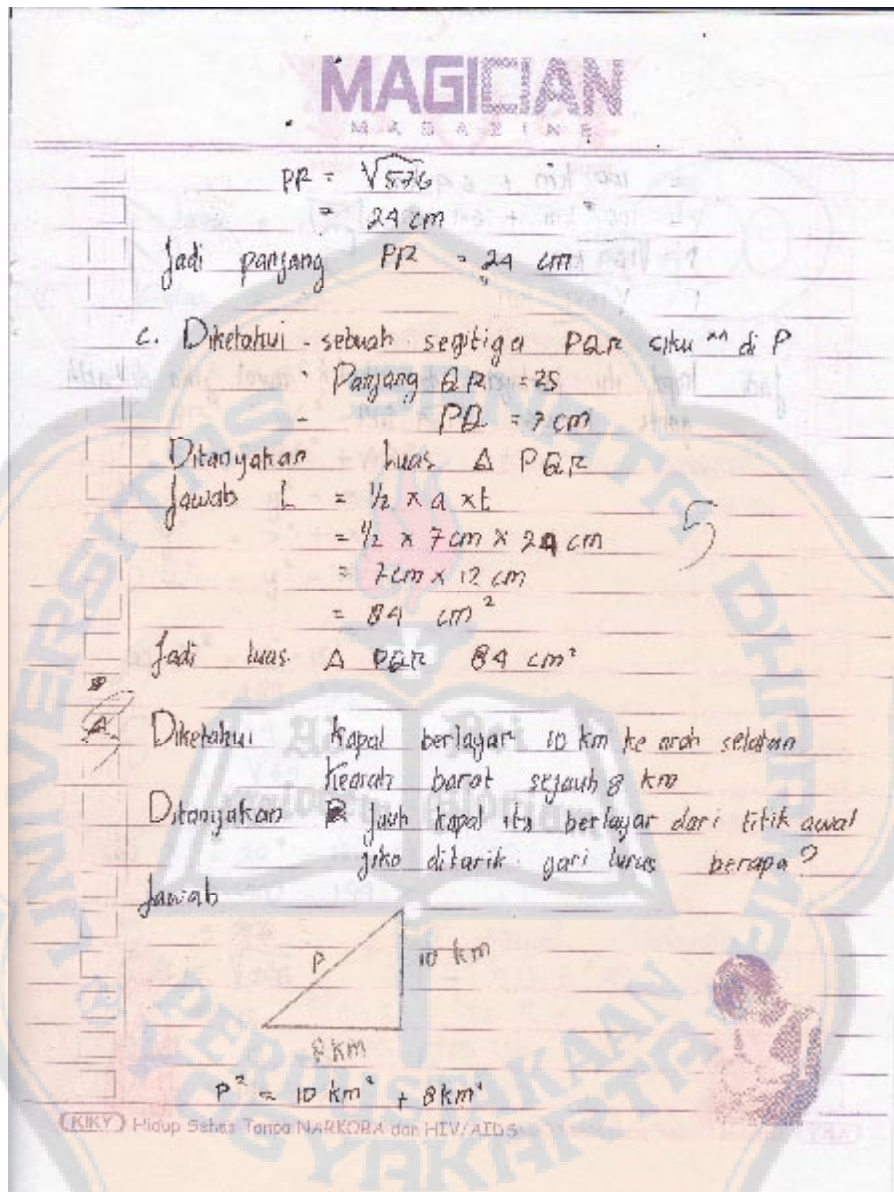 MAGICIAN
MAGAZINE
PR = √576
= 24 cm
Jadi panjang PR = 24 cm
c. Diketahui - sebuah segitiga PQR siku" di P
- Panjang QR = 25
- PQ = 7 cm
Ditanyakan Luas Δ PQR
Jawab L = 1/2 x a x t
= 1/2 x 7 cm x 24 cm
= 7 cm x 12 cm
= 84 cm²
5
Jadi luas Δ PQR 84 cm²
Diketahui Kapal berlayar 10 km ke arah selatan
Kearah barat sejauh 8 km
Ditanyakan Jauh kapal itu berlayar dari titik awal
jika ditarik gari lurus berapa?
Jawab
P 10 km
8 km
P² = 10 km² + 8 km²
KIKY Hidup Sehat Tanpa NARKOBA dan HIV/AIDS
UNIVERSITAS SANATA DHARMA
PERPUSTAKAAN
YOGYAKARTA